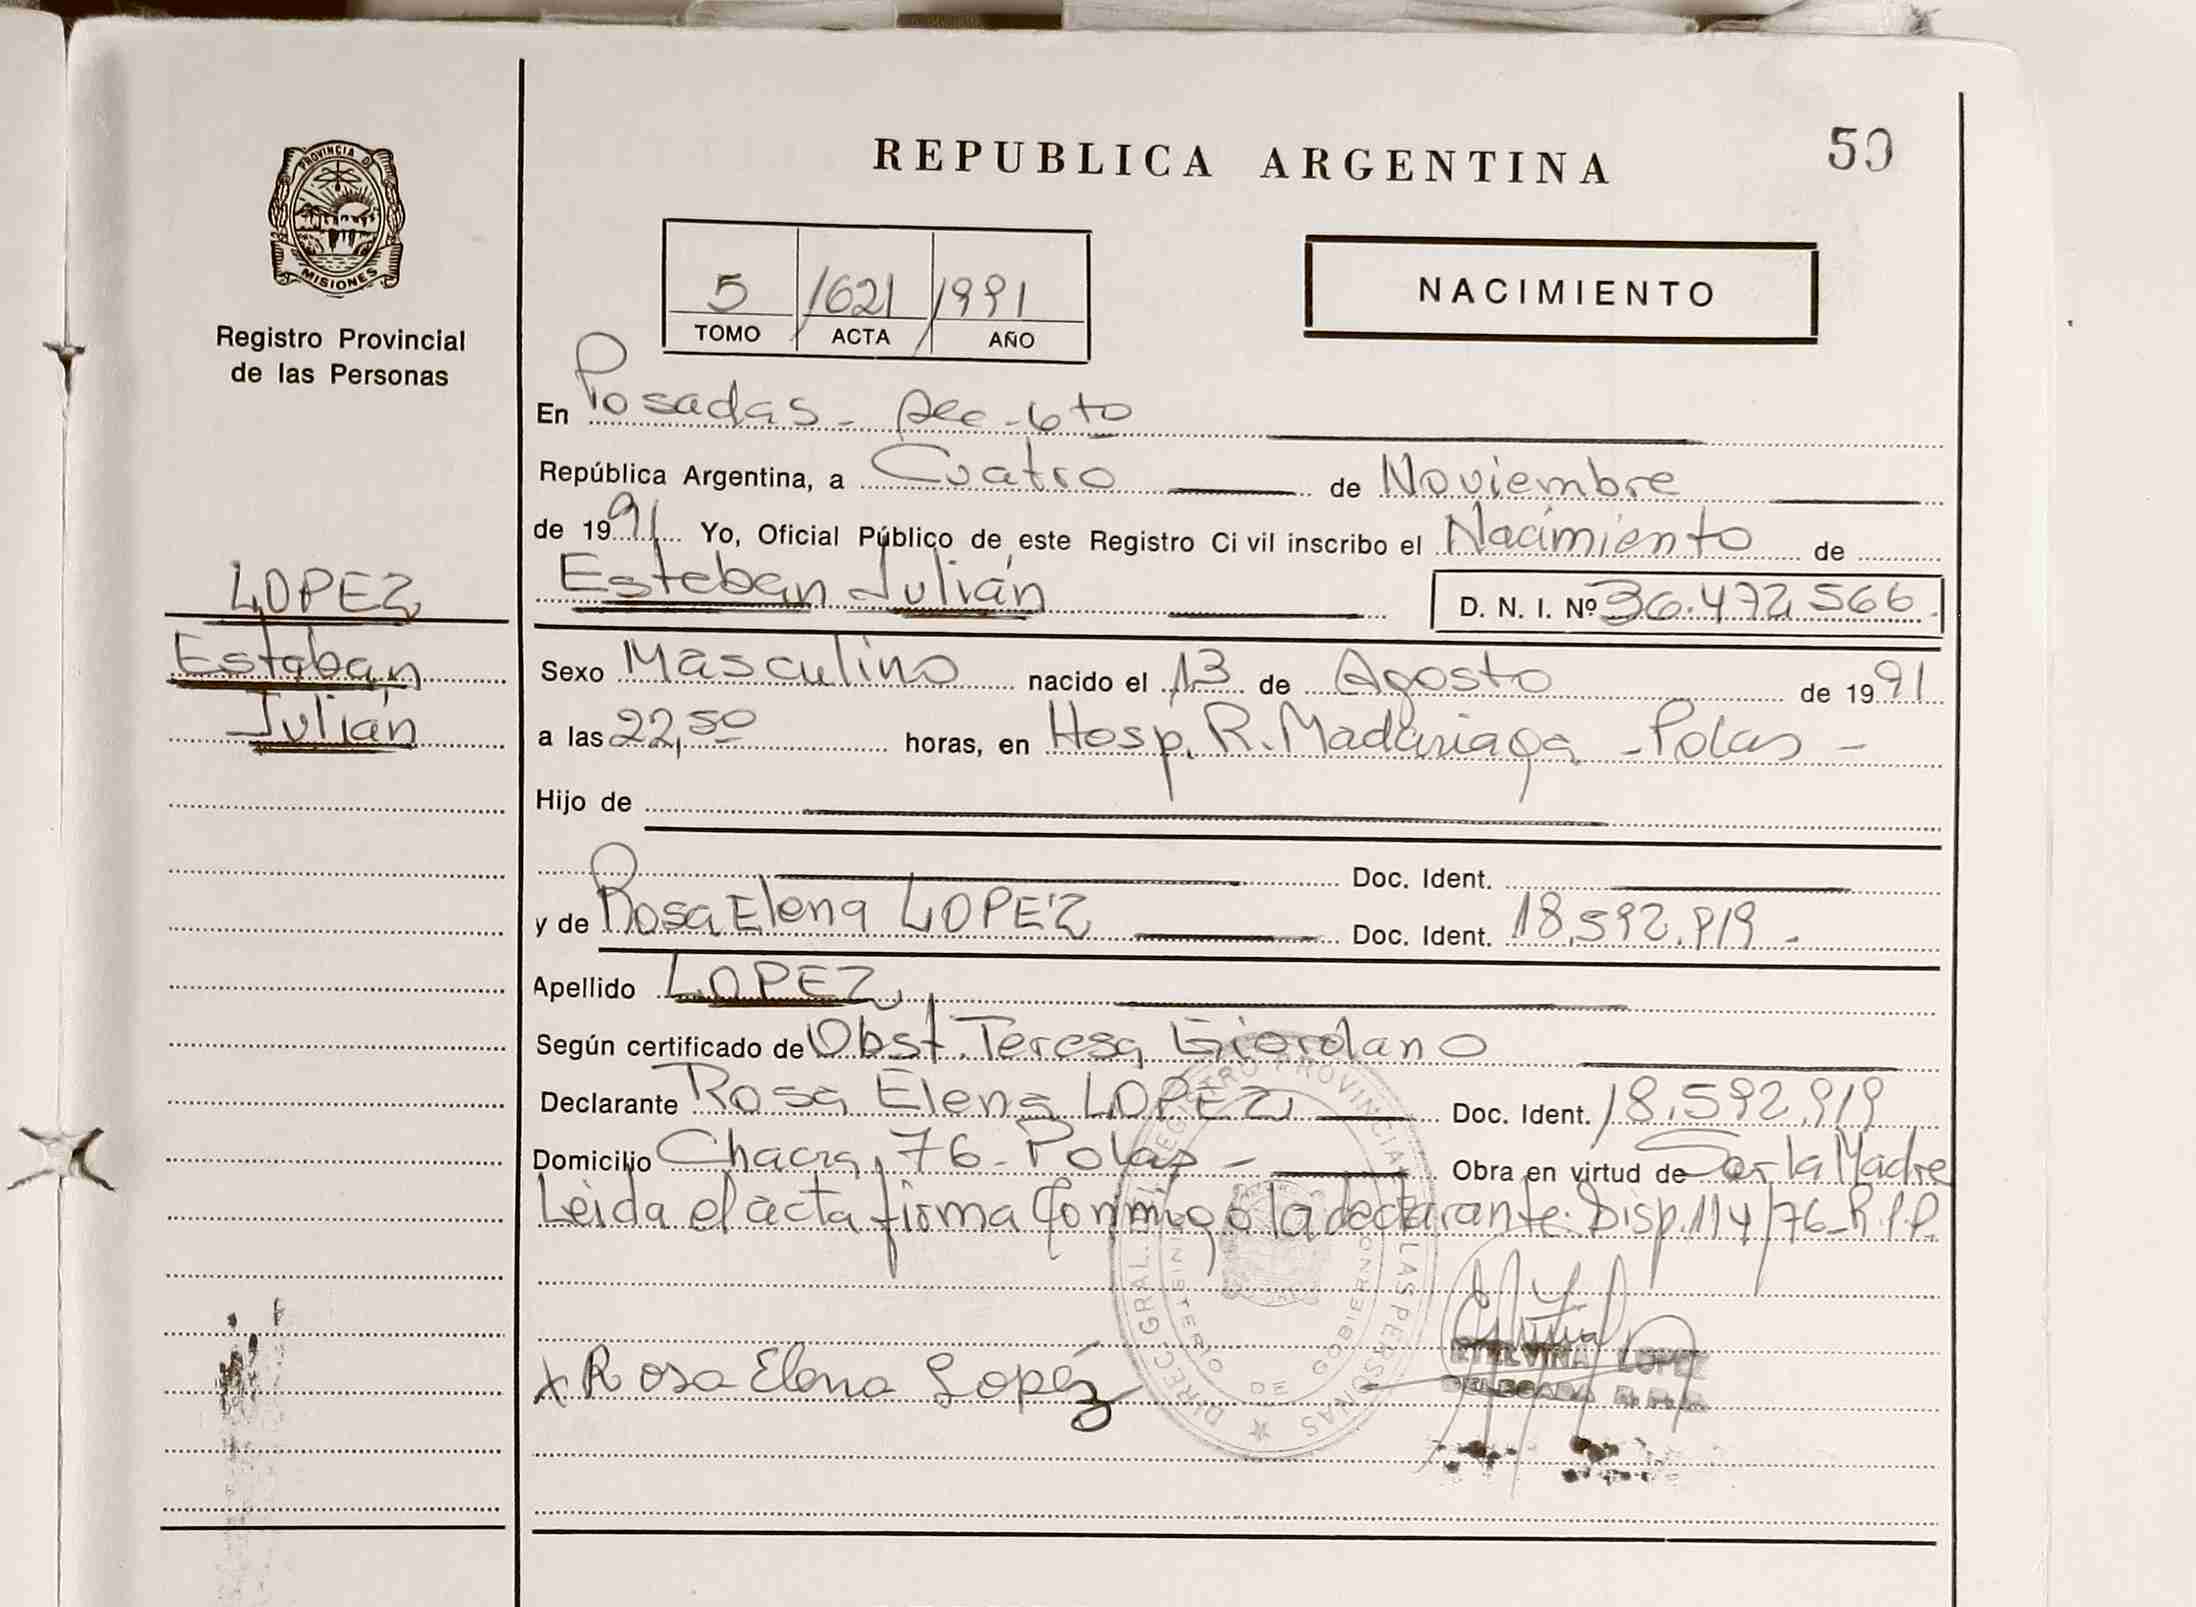 PROVINCIA DE
MISIONES
Registro Provincial
de las Personas
LOPEZ
Estaban
Julián
REPUBLICA ARGENTINA
50
5 /621 /1991
TOMO ACTA AÑO
NACIMIENTO
En Posadas - Sec - 6to
República Argentina, a Cuatro de Noviembre
de 1991 Yo, Oficial Público de este Registro Ci vil inscribo el Nacimiento de
Esteban Julián D. N. I. Nº 36.472.566.
Sexo Masculino nacido el 13 de Agosto de 1991
a las 22,50 horas, en Hosp. R. Madariaga - Pdas -
Hijo de
Doc. Ident.
y de Rosa Elena LOPEZ Doc. Ident. 18.592.919 -
Apellido LOPEZ
Según certificado de Obst. Teresa Giordano
Declarante Rosa Elena LOPEZ Doc. Ident. 18.592.919
Domicilio Chacra 76 - Pdas - Obra en virtud de Ser la Madre
Leida el acta firma conmigo la declarante. Disp. 114/76 - R.P.P.
x Rosa Elena Lopéz
ETELVINA LOPEZ
DELEGADA R.P.P.
DIREC. GRAL. DEL REGISTRO PROVINCIAL DE LAS PERSONAS
MINISTERIO DE GOBIERNO